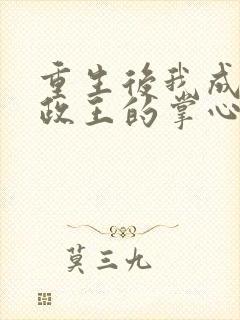 重生後我成
政王的掌心
莫三九